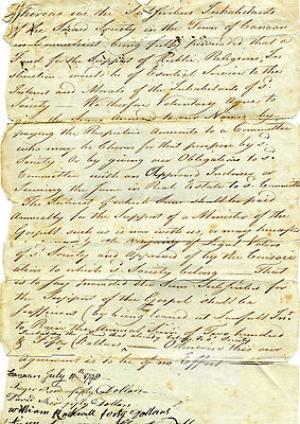 Whereas we the Subscribers Inhabitants
of the Second Society in the Town of Canaan
being fully persuaded that a
Fund for the Support of Public Religious In-
struction would be of Essential Service to the
Interest and Morals of the Inhabitants of sd.
Society — We therefore Voluntary agree to
the Sum Annexed to our Names by
paying the Respective Amounts to a Committee
who may be Chosen for that purpose by sd.
Society Or by giving our Obligations to sd.
Committee with an Approved Indorser or
Securing the same in Real Estate to sd. Committee
The Interest of which Sum shall be paid
Annually for the Support of a Minister of the
Gospell such as is now with us, or may hereafter
by the Majority of Legal Voters
of sd. Society and Approved of by the Consoci-
ation to which sd. Society belong — That
is to say provided the Sum Subscribed for
the Support of the Gospel shall be
sufficient (by being loaned at Lawfull Int.
to Raise the Annual Sum of Two hundred
& Fifty Dollars — Otherwise this our
agreement is to be of no Effect
Canaan July 11th 1798
fifty Dollars
fifty Dollars
William Rockwell forty Dollars